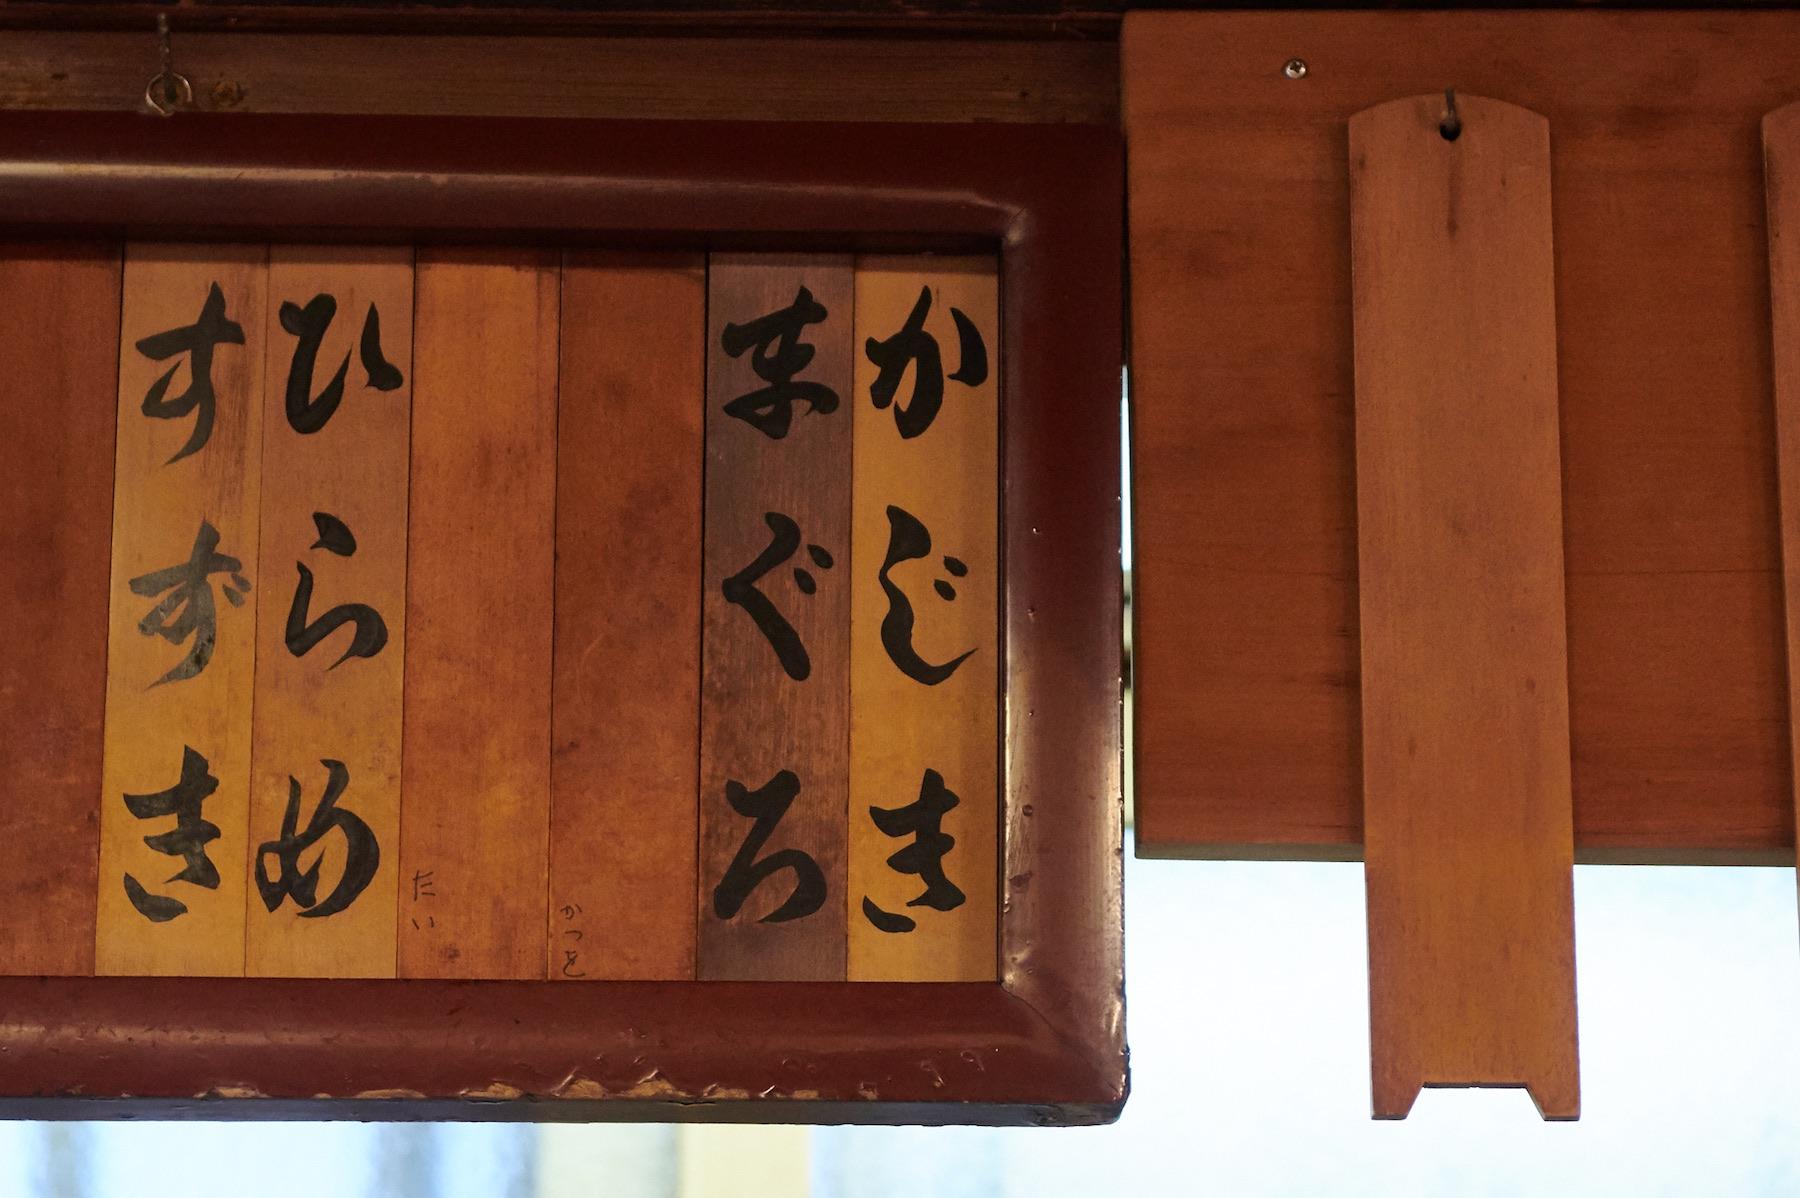 かじき
まぐろ
かつを
たい
ひらめ
すずき